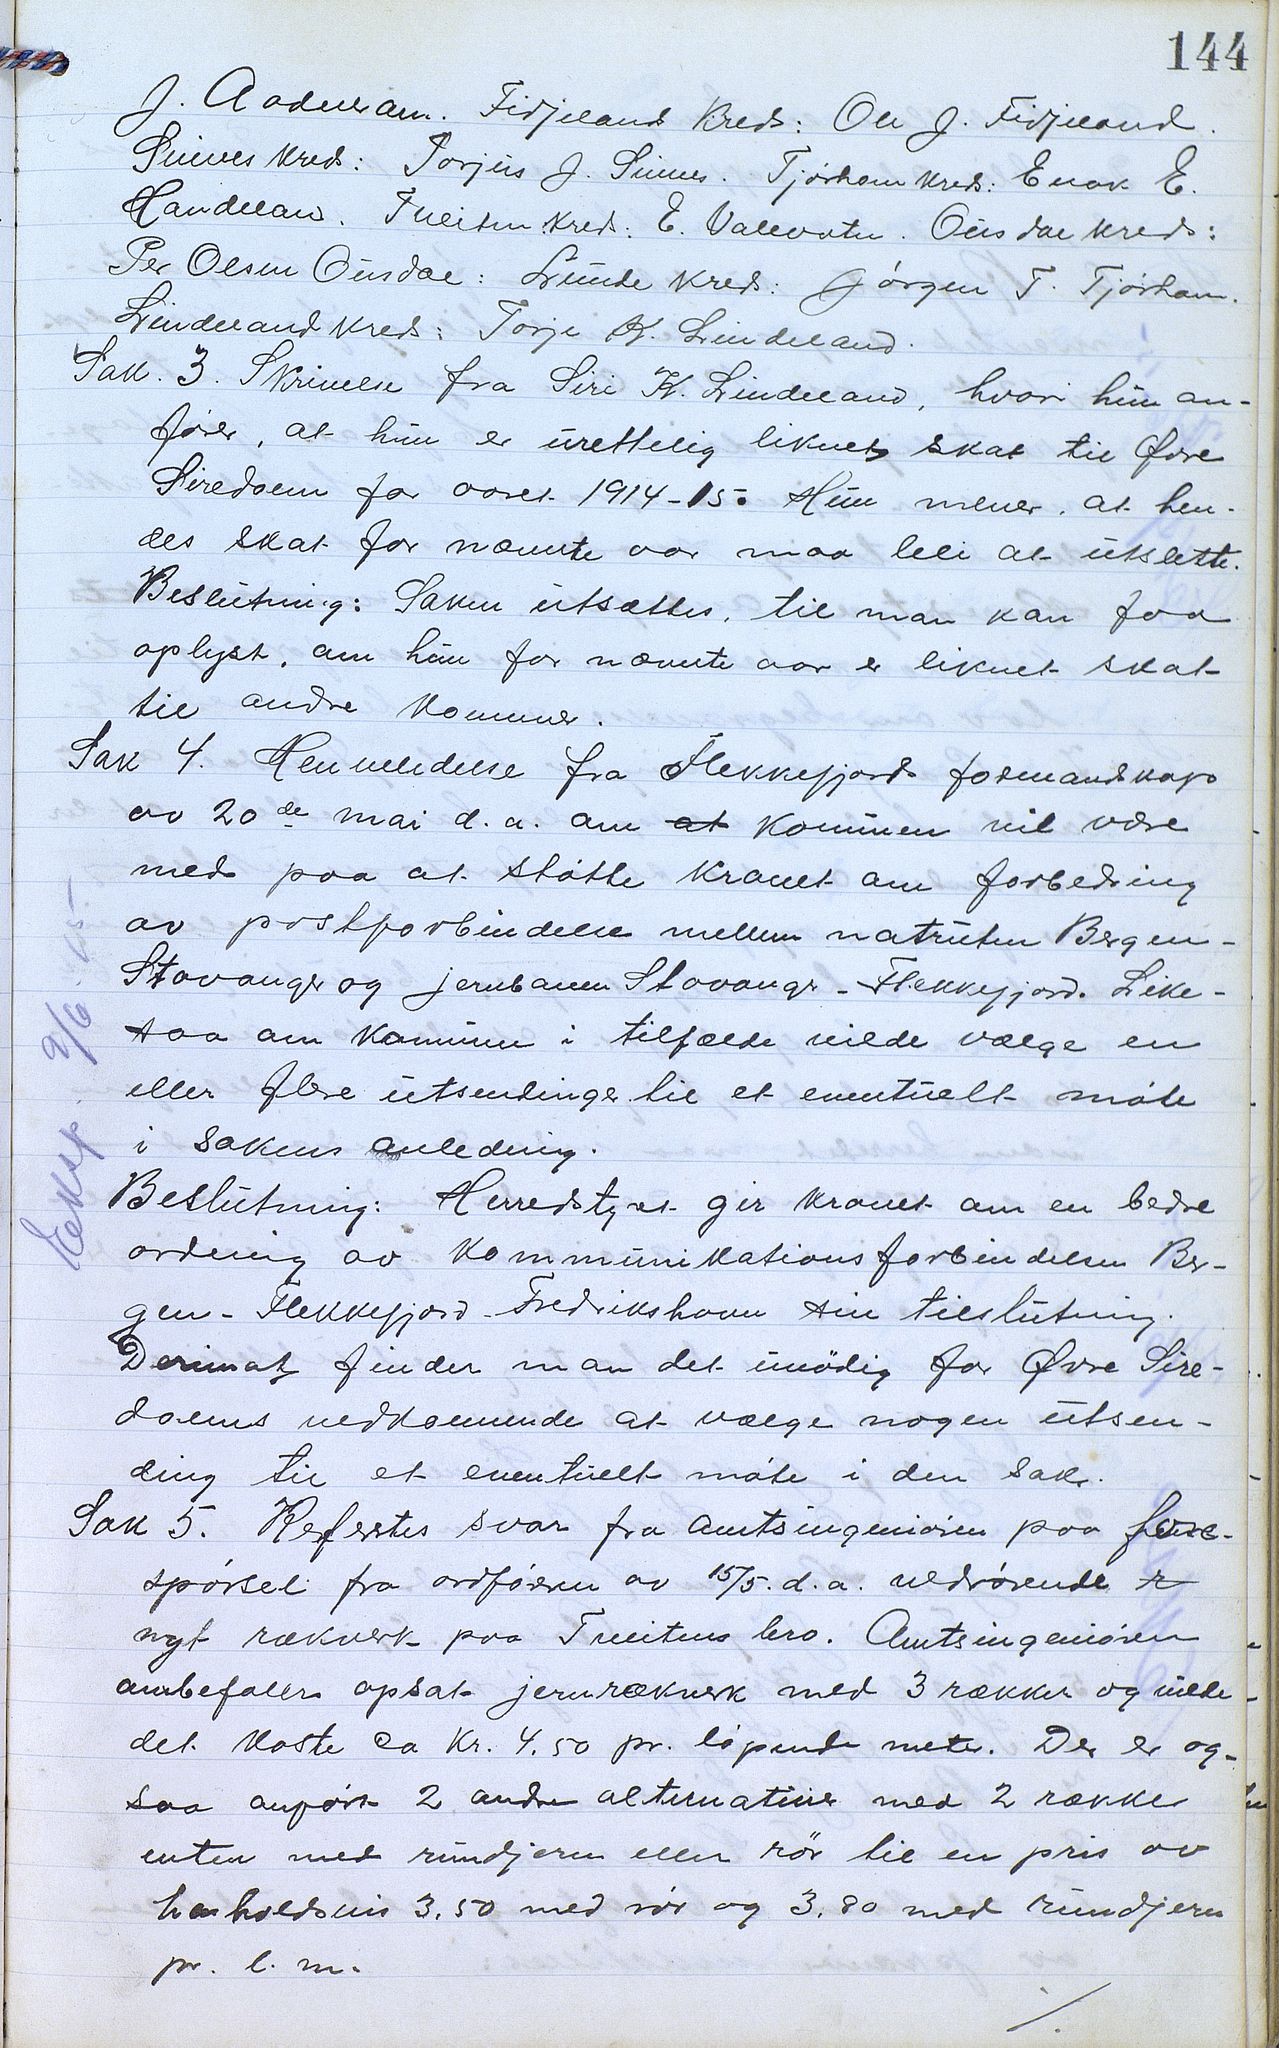 144
J. Aadneram. Fidjeland Kreds: Ole J. Fidjeland.
Sinnes Kreds: Torjus J. Sinnes. Tjørhom Kreds: Enok E.
Handeland. Tveiten Kreds: E. Valevatn. Ousdal Kreds:
Per Olsen Ousdal: Lunde Kreds: Jørgen T. Tjørhom.
Lindeland Kreds: Torje K. Lindeland.
Sak. 3. Skrivelse fra Siri K. Lindeland, hvori hun an-
fører, at hun er urettelig liknet skat til Øvre
Siredalen for aaret 1914-15. Hun mener, at hen-
des skat for nævnte aar maa bli at utslette.
Beslutning: Saken utsættes, til man kan faa
oplyst, om hun for nævnte aar er liknet skat
til andre kommuner.
Sak 4. Henvendelse fra Flekkefjords formandskap
av 20de mai d.a. om at kommunen vil være
med paa at støtte kravet om forbedring
av postforbindelse mellem natruten Bergen-
Stavanger og jernbanen Stavanger-Flekkefjord. Like-
saa om kommunen i tilfælde vilde vælge en
eller flere utsendinger til et eventuelt møte
i sakens anledning.
Beslutning: Herredstyret gir kravet om en bedre
ordning av kommunikationsforbindelsen Ber-
gen-Flekkefjord-Fredrikshavn sin tilslutning.
Derimot finder man det unødig for Øvre Sire-
dalens vedkommende at vælge nogen utsen-
ding til et eventuelt møte i den sak.
Sak 5. Refertes svar fra amtsingeniøren paa fore-
spørsel fra ordføreren av 15/5. d.a. vedrørende r
nyt rækverk paa Tveitens bro. Amtsingeniøren
anbefaler opsat jernrækverk med 3 rækker og vilde
det koste ca Kr. 4.50 pr. løpende meter. Der er og-
saa anført 2 andre alternativer med 2 rækker
enten med rundjern eller rør til en pris av
henholdsvis 3.50 med rør og 3.80 med rundjern
pr. l. m.
Eksp. 9/6 15